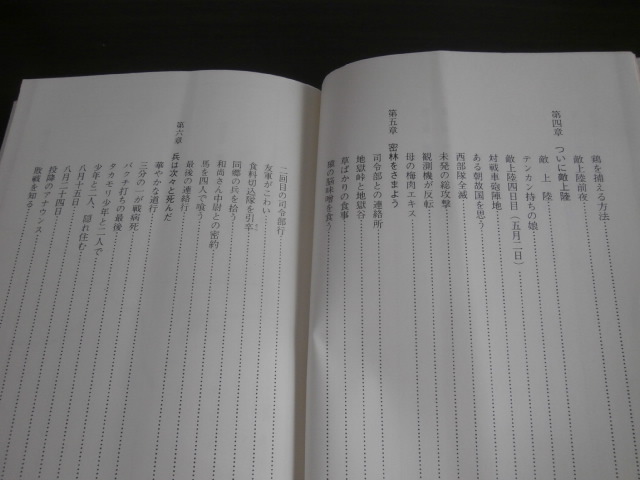 鶏を捕える方法
敵上陸前夜
第四章 ついに敵上陸
敵上陸
テンカン持ちの娘
敵上陸四日目(五月二日)
対戦車砲陣地
ある朝故国を思う
西部隊全滅
未発の総攻撃
観測機が反転
母の梅肉エキス
第五章 密林をさまよう
司令部との連絡所
地獄峠と地獄谷
草ばかりの食事
猿の脳味噌を食う
二回目の司令部行
友軍がこわい
食料切込隊を引率
同郷の兵を拾う
和尚さん中尉との密約
馬を四人で喰う
最後の連絡行
第六章 兵は次々と死んだ
華やかな道行
三分の一が戦病死
バクチ打ちの最後
タカモリ少年と二人で
少年と二人、隠れ住む
八月十五日
八月二十四日
投降のアナウンス
敗戦を知る